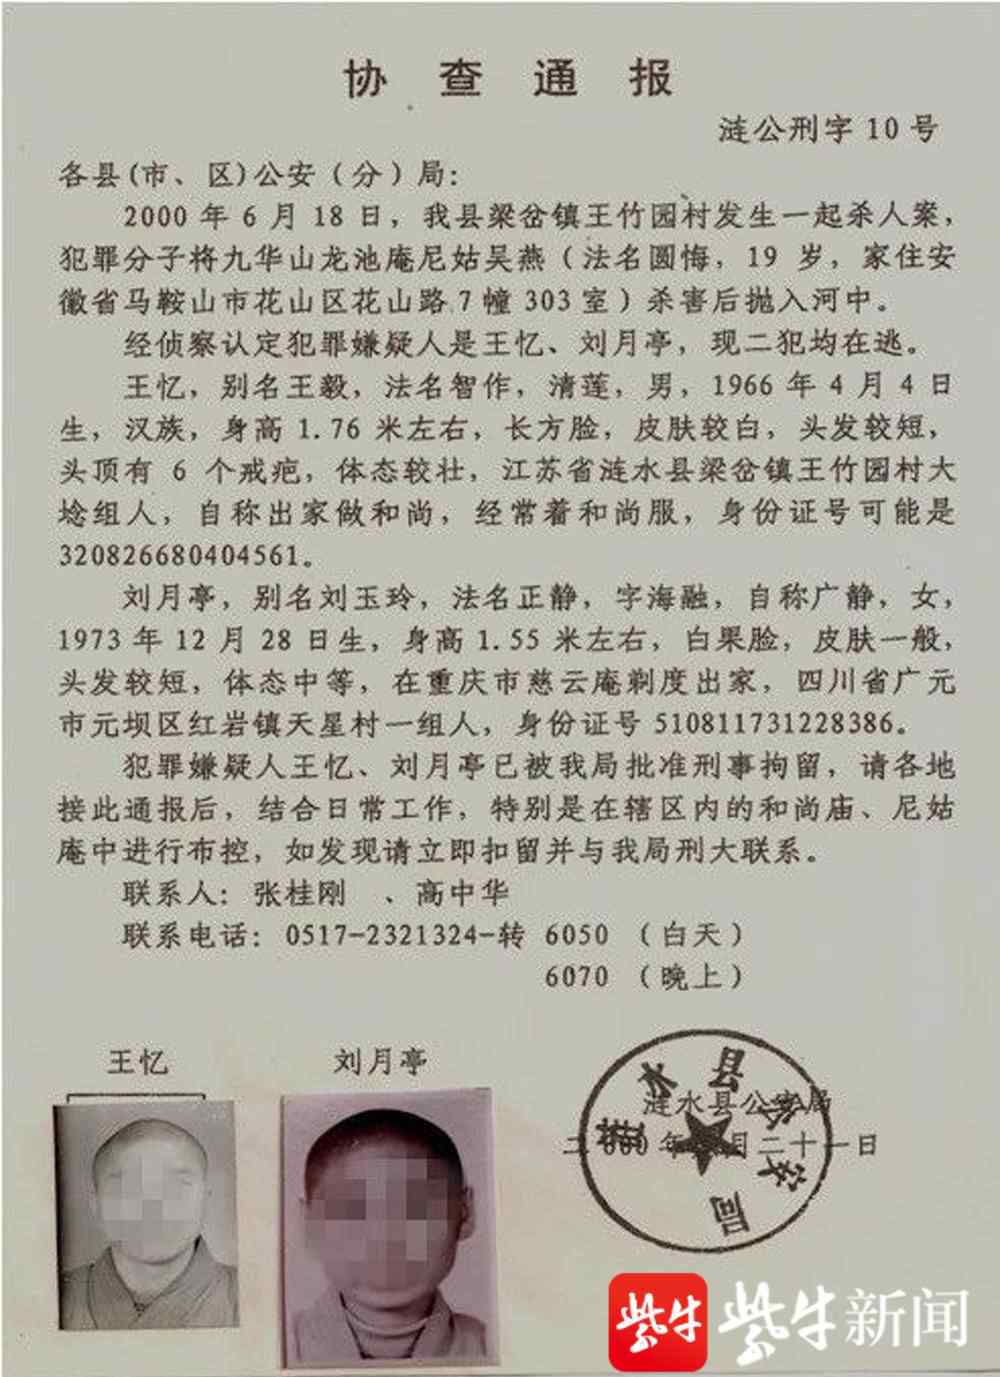 协查通报
涟公刑字10号
各县(市、区)公安(分)局:
2000年6月18日，我县梁岔镇王竹园村发生一起杀人案，
犯罪分子将九华山龙池庵尼姑吴燕(法名圆悔，19岁，家住安
徽省马鞍山市花山区花山路7幢303室)杀害后抛入河中。
经侦察认定犯罪嫌疑人是王忆、刘月亭，现二犯均在逃。
王忆，别名王毅，法名智作，清莲，男，1966年4月4日
生，汉族，身高1.76米左右，长方脸，皮肤较白，头发较短，
头顶有6个戒疤，体态较壮，江苏省涟水县梁岔镇王竹园村大
埝组人，自称出家做和尚，经常着和尚服，身份证号可能是
320826680404561。
刘月亭，别名刘玉玲，法名正静，字海融，自称广静，女，
1973年12月28日生，身高1.55米左右，白果脸，皮肤一般，
头发较短，体态中等，在重庆市慈云庵剃度出家，四川省广元
市元坝区红岩镇天星村一组人，身份证号510811731228386。
犯罪嫌疑人王忆、刘月亭已被我局批准刑事拘留，请各地
接此通报后，结合日常工作，特别是在辖区内的和尚庙、尼姑
庵中进行布控，如发现请立即扣留并与我局刑大联系。
联系人：张桂刚 、高中华
联系电话：0517-2321324-转 6050 (白天)
6070 (晚上)
王忆
刘月亭
涟水县公安局
月二十一日
涟水县公安局
紫牛
紫牛新闻